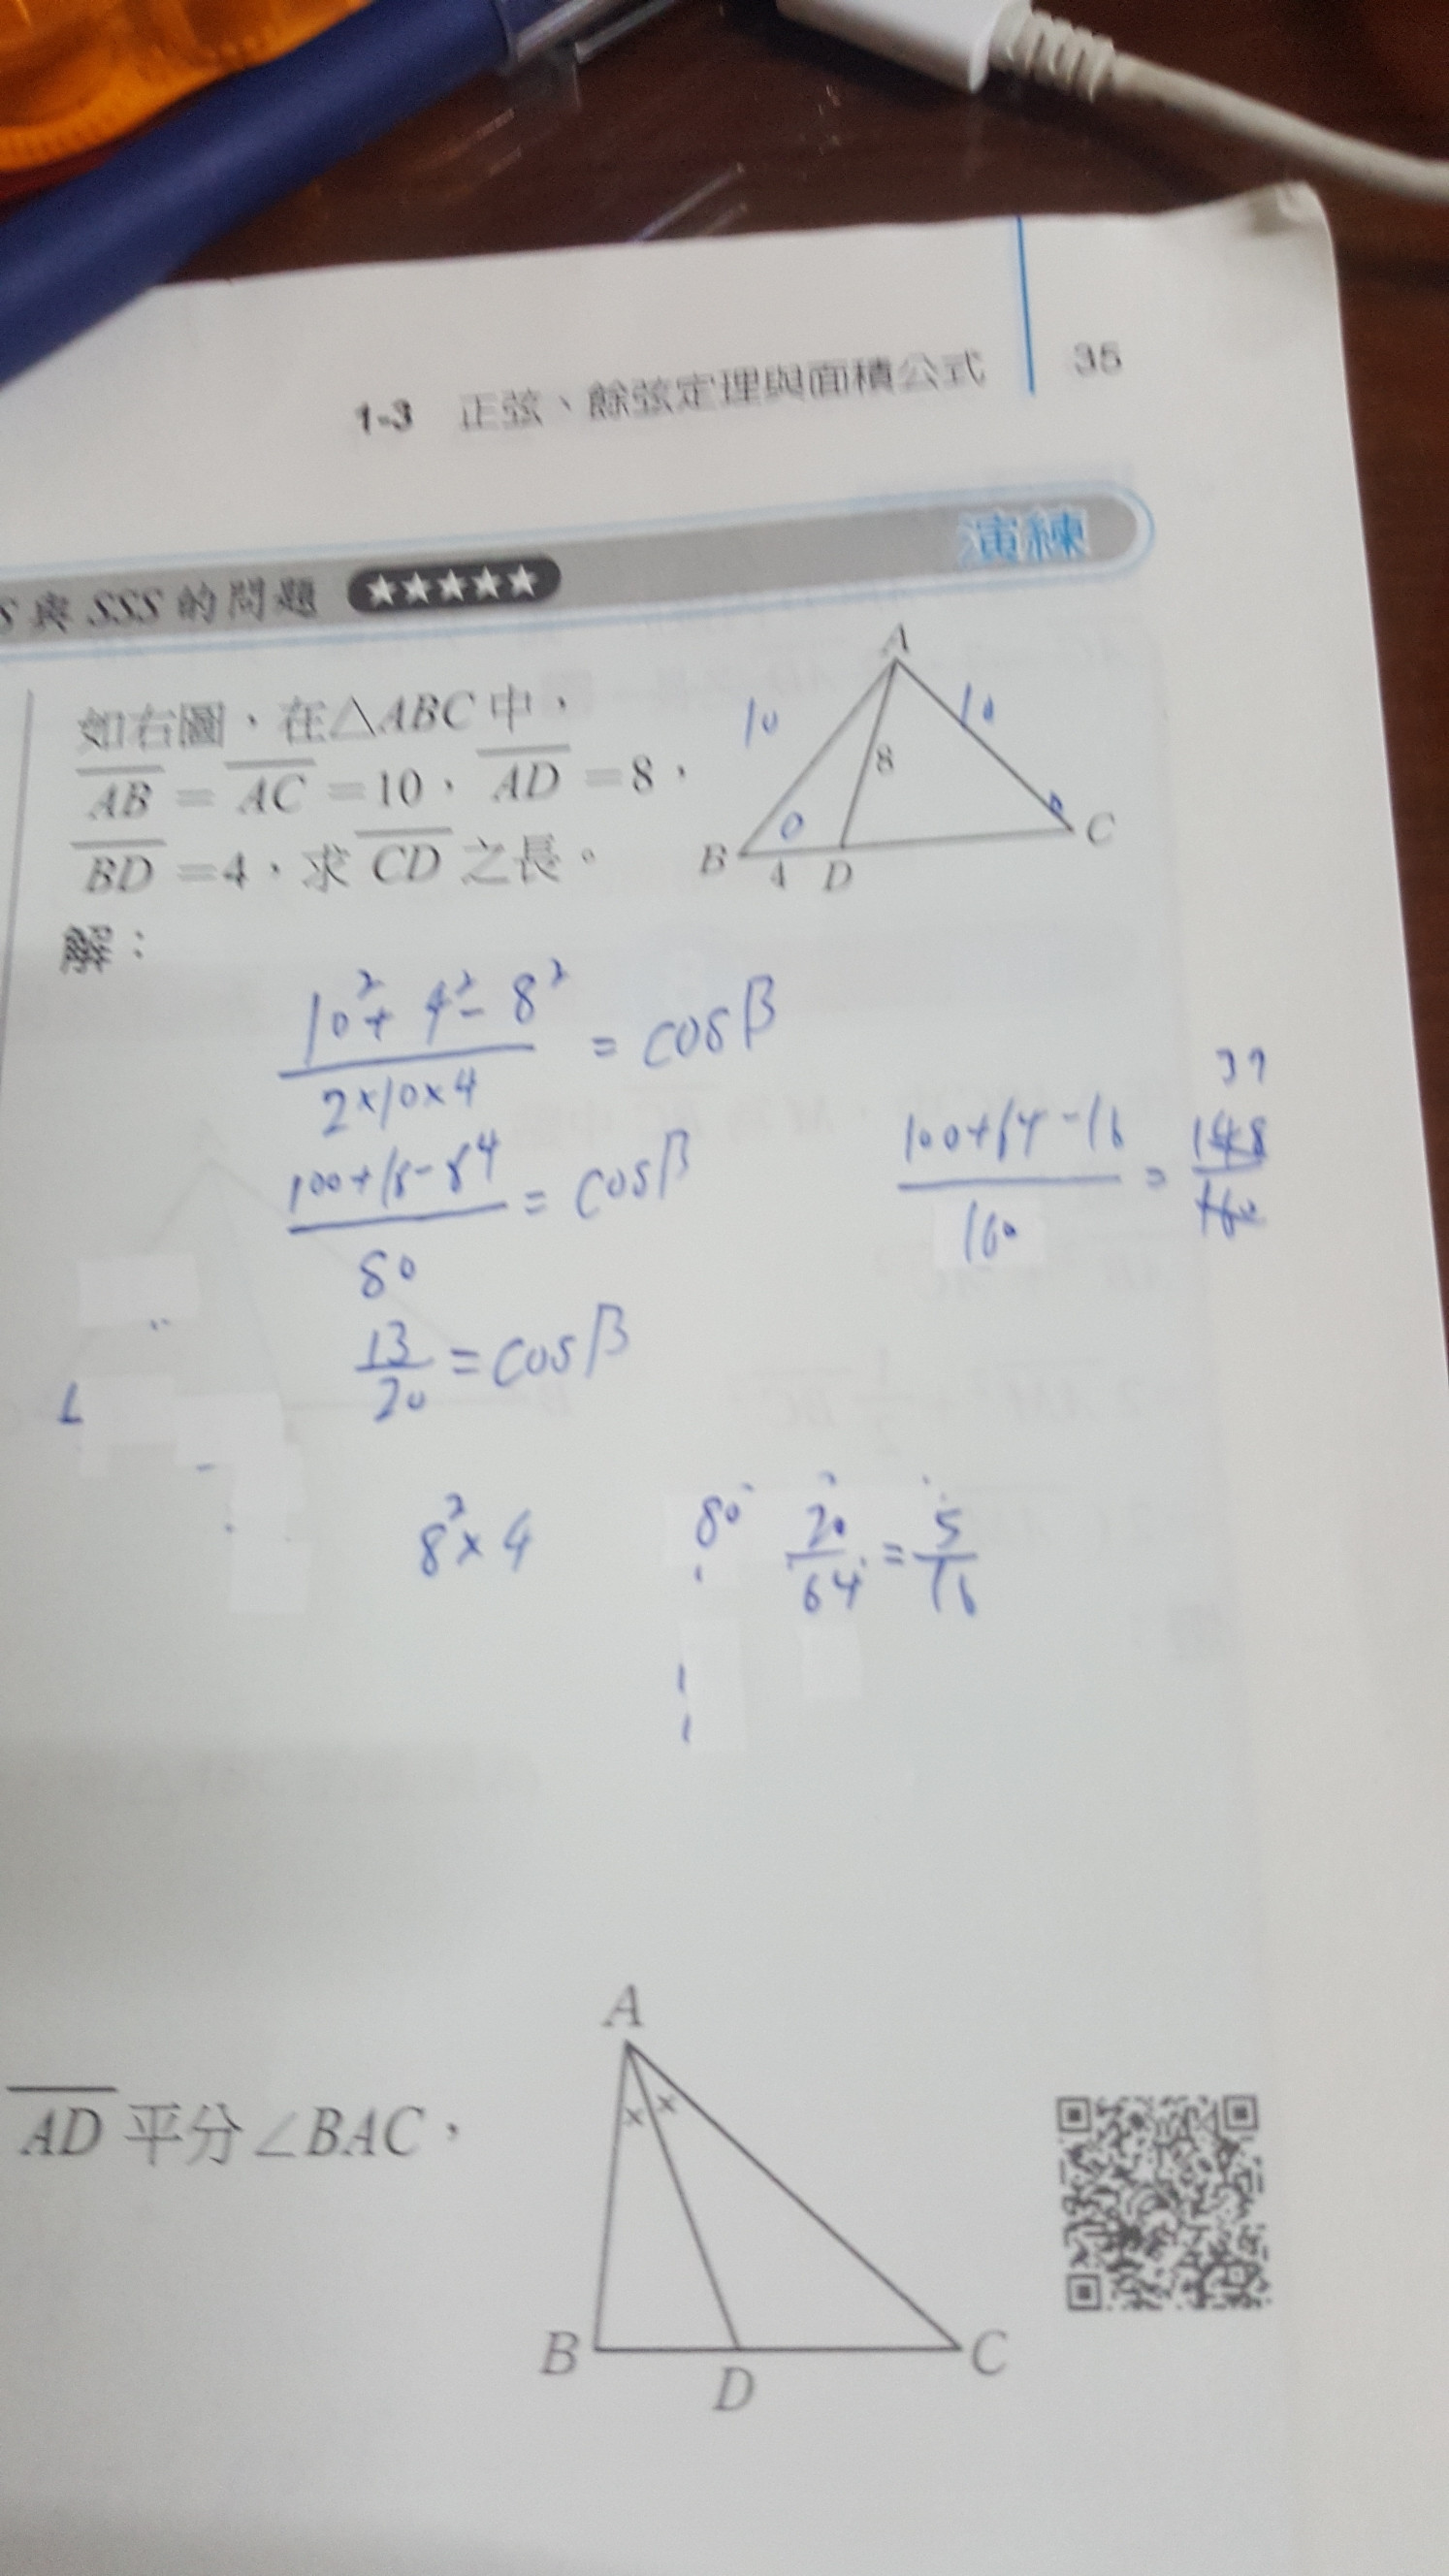 1-3 正弦、餘弦定理與面積公式 35
演練
S 與 SSS 的問題 ★★★★★
如右圖，在△ABC 中，
AB = AC =10，AD =8，
BD =4，求 CD 之長。
A
10
10
8
B
4
D
C
解：
10²+ 4²- 8² = cosβ
2×10×4
= cosβ
80
13/20 = cosβ
100+64-16
160
=
148
37
8²×4
80
20/64 = 5/16
AD 平分∠BAC，
A
× ×
B
D
C